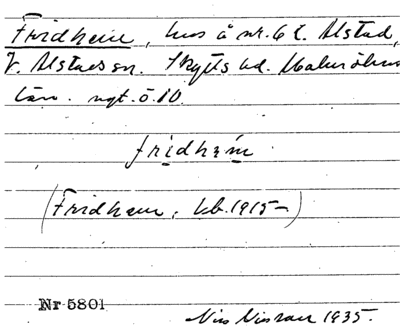 Fridhem, hus å nr. 6 i. Alstad,
V. Alstads sn. Skytts hd. Malmöhus
län. ngt. ö. 10.
fridhem
(Fridhem, kb. 1915–)
Nr 5801
Nils Nilsson 1935.